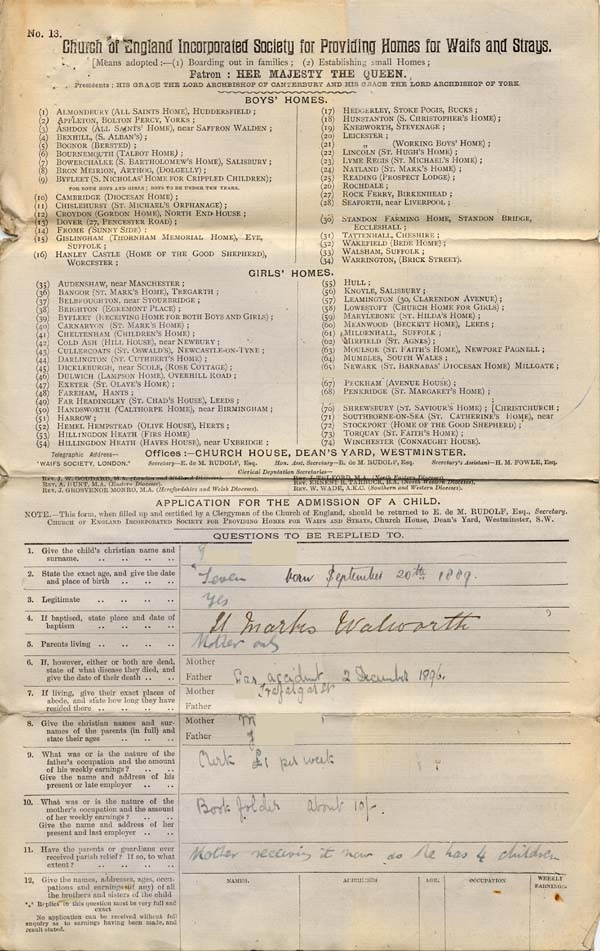 No. 13.
Church of England Incorporated Society for Providing Homes for Waifs and Strays.
[Means adopted:—(1) Boarding out in families; (2) Establishing small Homes;
Patron : HER MAJESTY THE QUEEN.
Presidents: HIS GRACE THE LORD ARCHBISHOP OF CANTERBURY AND HIS GRACE THE LORD ARCHBISHOP OF YORK.
BOYS' HOMES.
(1) ALMONDBURY (ALL SAINTS HOME), HUDDERSFIELD;
(2) APPLETON, BOLTON PERCY, YORKS;
(3) ASHDON (ALL SAINTS' HOME), near SAFFRON WALDEN;
(4) BEXHILL, (S. ALBAN'S);
(5) BOGNOR (BERSTED);
(6) BOURNEMOUTH (TALBOT HOME);
(7) BOWERCHALKE (S. BARTHOLOMEW'S HOME), SALISBURY;
(8) BRON MEIRION, ARTHOG, (DOLGELLY);
(9) BYFLEET (S. NICHOLAS' HOME FOR CRIPPLED CHILDREN);
FOR BOTH BOYS AND GIRLS; BOYS TO BE UNDER TEN YEARS.
(10) CAMBRIDGE (DIOCESAN HOME);
(11) CHISLEHURST (ST. MICHAEL'S ORPHANAGE);
(12) CROYDON (GORDON HOME), NORTH END HOUSE;
(13) DOVER (27, PENCESTER ROAD);
(14) FROME (SUNNY SIDE);
(15) GISLINGHAM (THORNHAM MEMORIAL HOME), EYE, SUFFOLK;
(16) HANLEY CASTLE (HOME OF THE GOOD SHEPHERD), WORCESTER;
(17) HEDGERLEY, STOKE POGIS, BUCKS;
(18) HUNSTANTON (S. CHRISTOPHER'S HOME);
(19) KNEBWORTH, STEVENAGE;
(20) LEICESTER;
(21) „ (WORKING BOYS' HOME)
(22) LINCOLN (ST. HUGH'S HOME);
(23) LYME REGIS (ST. MICHAEL'S HOME);
(24) NATLAND (ST. MARK'S HOME);
(25) READING (PROSPECT LODGE);
(26) ROCHDALE;
(27) ROCK FERRY, BIRKENHEAD;
(28) SEAFORTH, near LIVERPOOL;
(30) STANDON FARMING HOME, STANDON BRIDGE, ECCLESHALL;
(31) TATTENHALL, CHESHIRE;
(32) WAKEFIELD (BEDE HOME);
(33) WALSHAM, SUFFOLK;
(34) WARRINGTON, (BRICK STREET).
GIRLS' HOMES.
(35) AUDENSHAW, near MANCHESTER;
(36) BANGOR (ST. MARK'S HOME), TREGARTH;
(37) BELBROUGHTON, near STOURBRIDGE;
(38) BRIGHTON (EGREMONT PLACE);
(39) BYFLEET (RECEIVING HOME FOR BOTH BOYS AND GIRLS);
(40) CARNARVON (ST. MARK'S HOME);
(41) CHELTENHAM (CHILDREN'S HOME);
(42) COLD ASH (HILL HOUSE), near NEWBURY;
(43) CULLERCOATS (ST. OSWALD'S), NEWCASTLE-ON-TYNE;
(44) DARLINGTON (ST. CUTHBERT'S HOME);
(45) DICKLEBURGH, near SCOLE, (ROSE COTTAGE);
(46) DULWICH (LAMPSON HOME), OVERHILL ROAD;
(47) EXETER (ST. OLAVE'S HOME);
(48) FAREHAM, HANTS;
(49) FAR HEADINGLEY (ST. CHAD'S HOUSE), LEEDS;
(50) HANDSWORTH (CALTHORPE HOME), near BIRMINGHAM;
(51) HARROW;
(52) HEMEL HEMPSTEAD (OLIVE HOUSE), HERTS;
(53) HILLINGDON HEATH (FIRS HOME)
(54) HILLINGDON HEATH (HAYES HOUSE), near UXBRIDGE;
(55) HULL;
(56) KNOYLE, SALISBURY;
(57) LEAMINGTON (30, CLARENDON AVENUE);
(58) LOWESTOFT (CHURCH HOME FOR GIRLS);
(59) MARYLEBONE (ST. HILDA'S HOME);
(60) MEANWOOD (BECKETT HOME), LEEDS;
(61) MILDENHALL, SUFFOLK;
(62) MIRFIELD (ST. AGNES);
(63) MOULSOE (ST. FAITH'S HOME), NEWPORT PAGNELL;
(64) MUMBLES, SOUTH WALES;
(65) NEWARK (ST. BARNABAS' DIOCESAN HOME) MILLGATE;
(67) PECKHAM (AVENUE HOUSE);
(68) PENKRIDGE (ST. MARGARET'S HOME);
(70) SHREWSBURY (ST. SAVIOUR'S HOME); [CHRISTCHURCH;
(71) SOUTHBORNE-ON-SEA (ST. CATHERINE'S HOME), near
(72) STOCKPORT (HOME OF THE GOOD SHEPHERD);
(73) TORQUAY (ST. FAITH'S HOME);
(74) WINCHESTER (CONNAUGHT HOUSE).
Telegraphic Address— Offices:—CHURCH HOUSE, DEAN'S YARD, WESTMINSTER.
"WAIFS SOCIETY, LONDON." Secretary—E. de M. RUDOLF, ESQ. Hon. Asst. Secretary—R. de M. RUDOLF, ESQ. Secretary's Assistant—H. M. FOWLE, ESQ.
Clerical Deputation Secretaries—
REV. J. W. GODDARD, M.A.
REV. A. FUNT, M.A. (Eastern Dioceses).
REV. J. GROSVENOR MONRO, M.A. (Herefordshire and Welsh Dioceses).
REV. J. TELFORD, M.A.
REV. ERNEST R. TARBUCK, B.A. (North Western Dioceses).
REV. W. WADE, A.K.C. (Southern and Western Dioceses).
APPLICATION FOR THE ADMISSION OF A CHILD.
NOTE.—This form, when filled up and certified by a Clergyman of the Church of England, should be returned to E. de M. RUDOLF, Esq., Secretary.
CHURCH OF ENGLAND INCORPORATED SOCIETY FOR PROVIDING HOMES FOR WAIFS AND STRAYS, Church House, Dean's Yard, Westminster, S.W.
QUESTIONS TO BE REPLIED TO.
1. Give the child's christian name and surname.
2. State the exact age, and give the date and place of birth
Seven born September 20th 1889.
3. Legitimate
Yes
4. If baptised, state place and date of baptism
St Marks Walworth
5. Parents living
Mother only
6. If, however, either or both are dead, state of what disease they died, and give the date of their death
Mother
Father Car accident 2 December 1896.
7. If living, give their exact places of abode, and state how long they have resided there
Mother Trafalgar St
Father
8. Give the christian names and surnames of the parents (in full) and state their ages
Mother M
Father J
9. What was or is the nature of the father's occupation and the amount of his weekly earnings?
Give the name and address of his present or late employer
Clerk £1 per week
10. What was or is the nature of the mother's occupation and the amount of her weekly earnings?
Give the name and address of her present and last employer
Book folder about 10/-.
11. Have the parents or guardians ever received parish relief? If so, to what extent?
Mother receiving it now as she has 4 children
12. Give the names, addresses, ages, occupations and earnings (if any) of all the brothers and sisters of the child
*** Replies to this question must be very full and exact
No application can be received without full enquiry as to earnings having been made, and result stated.
NAMES. ADDRESSES AGE. OCCUPATION WEEKLY EARNINGS.